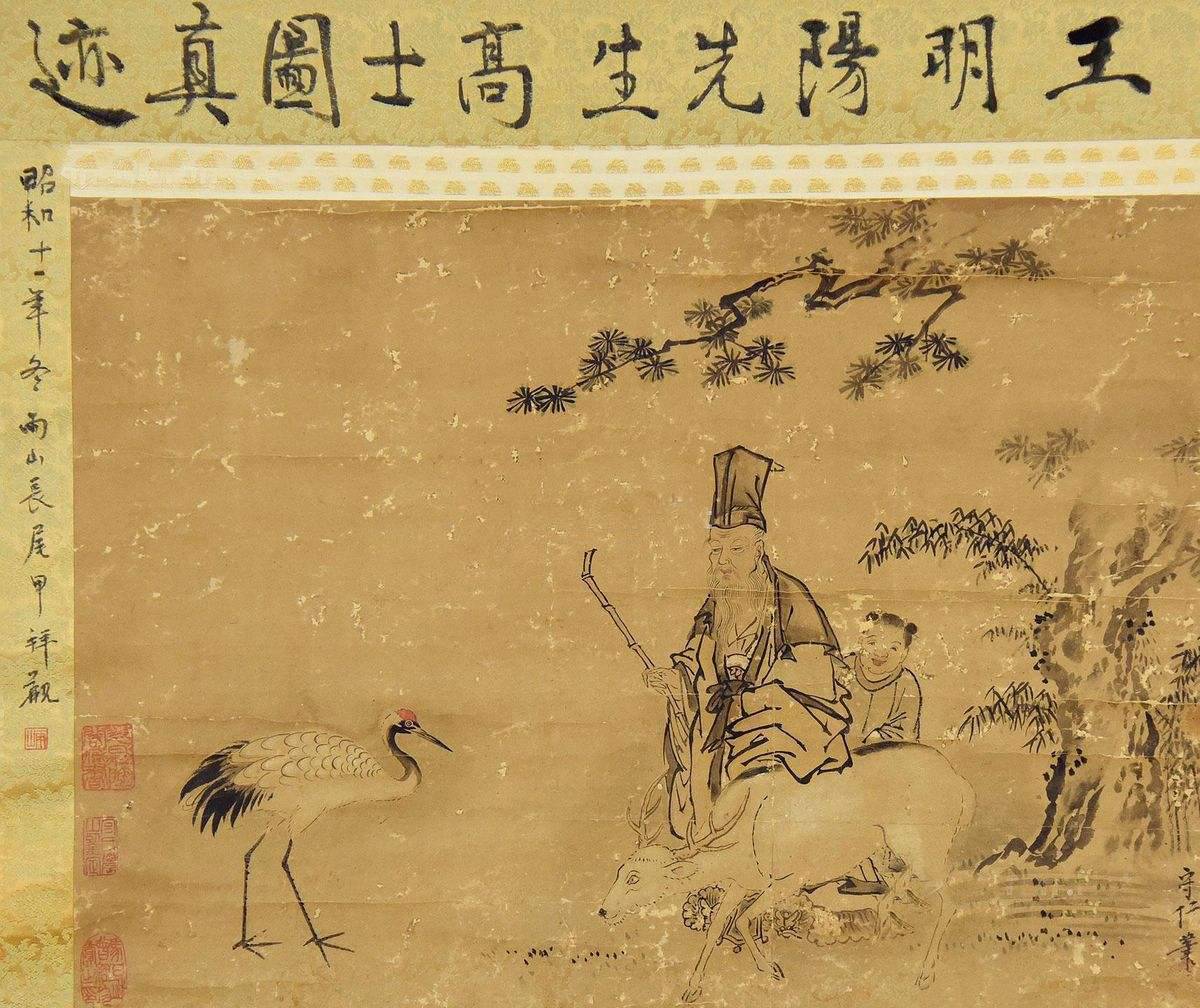 王明陽先生高士圖真迹
昭和十一年冬雨山長尾甲拜觀
守仁筆